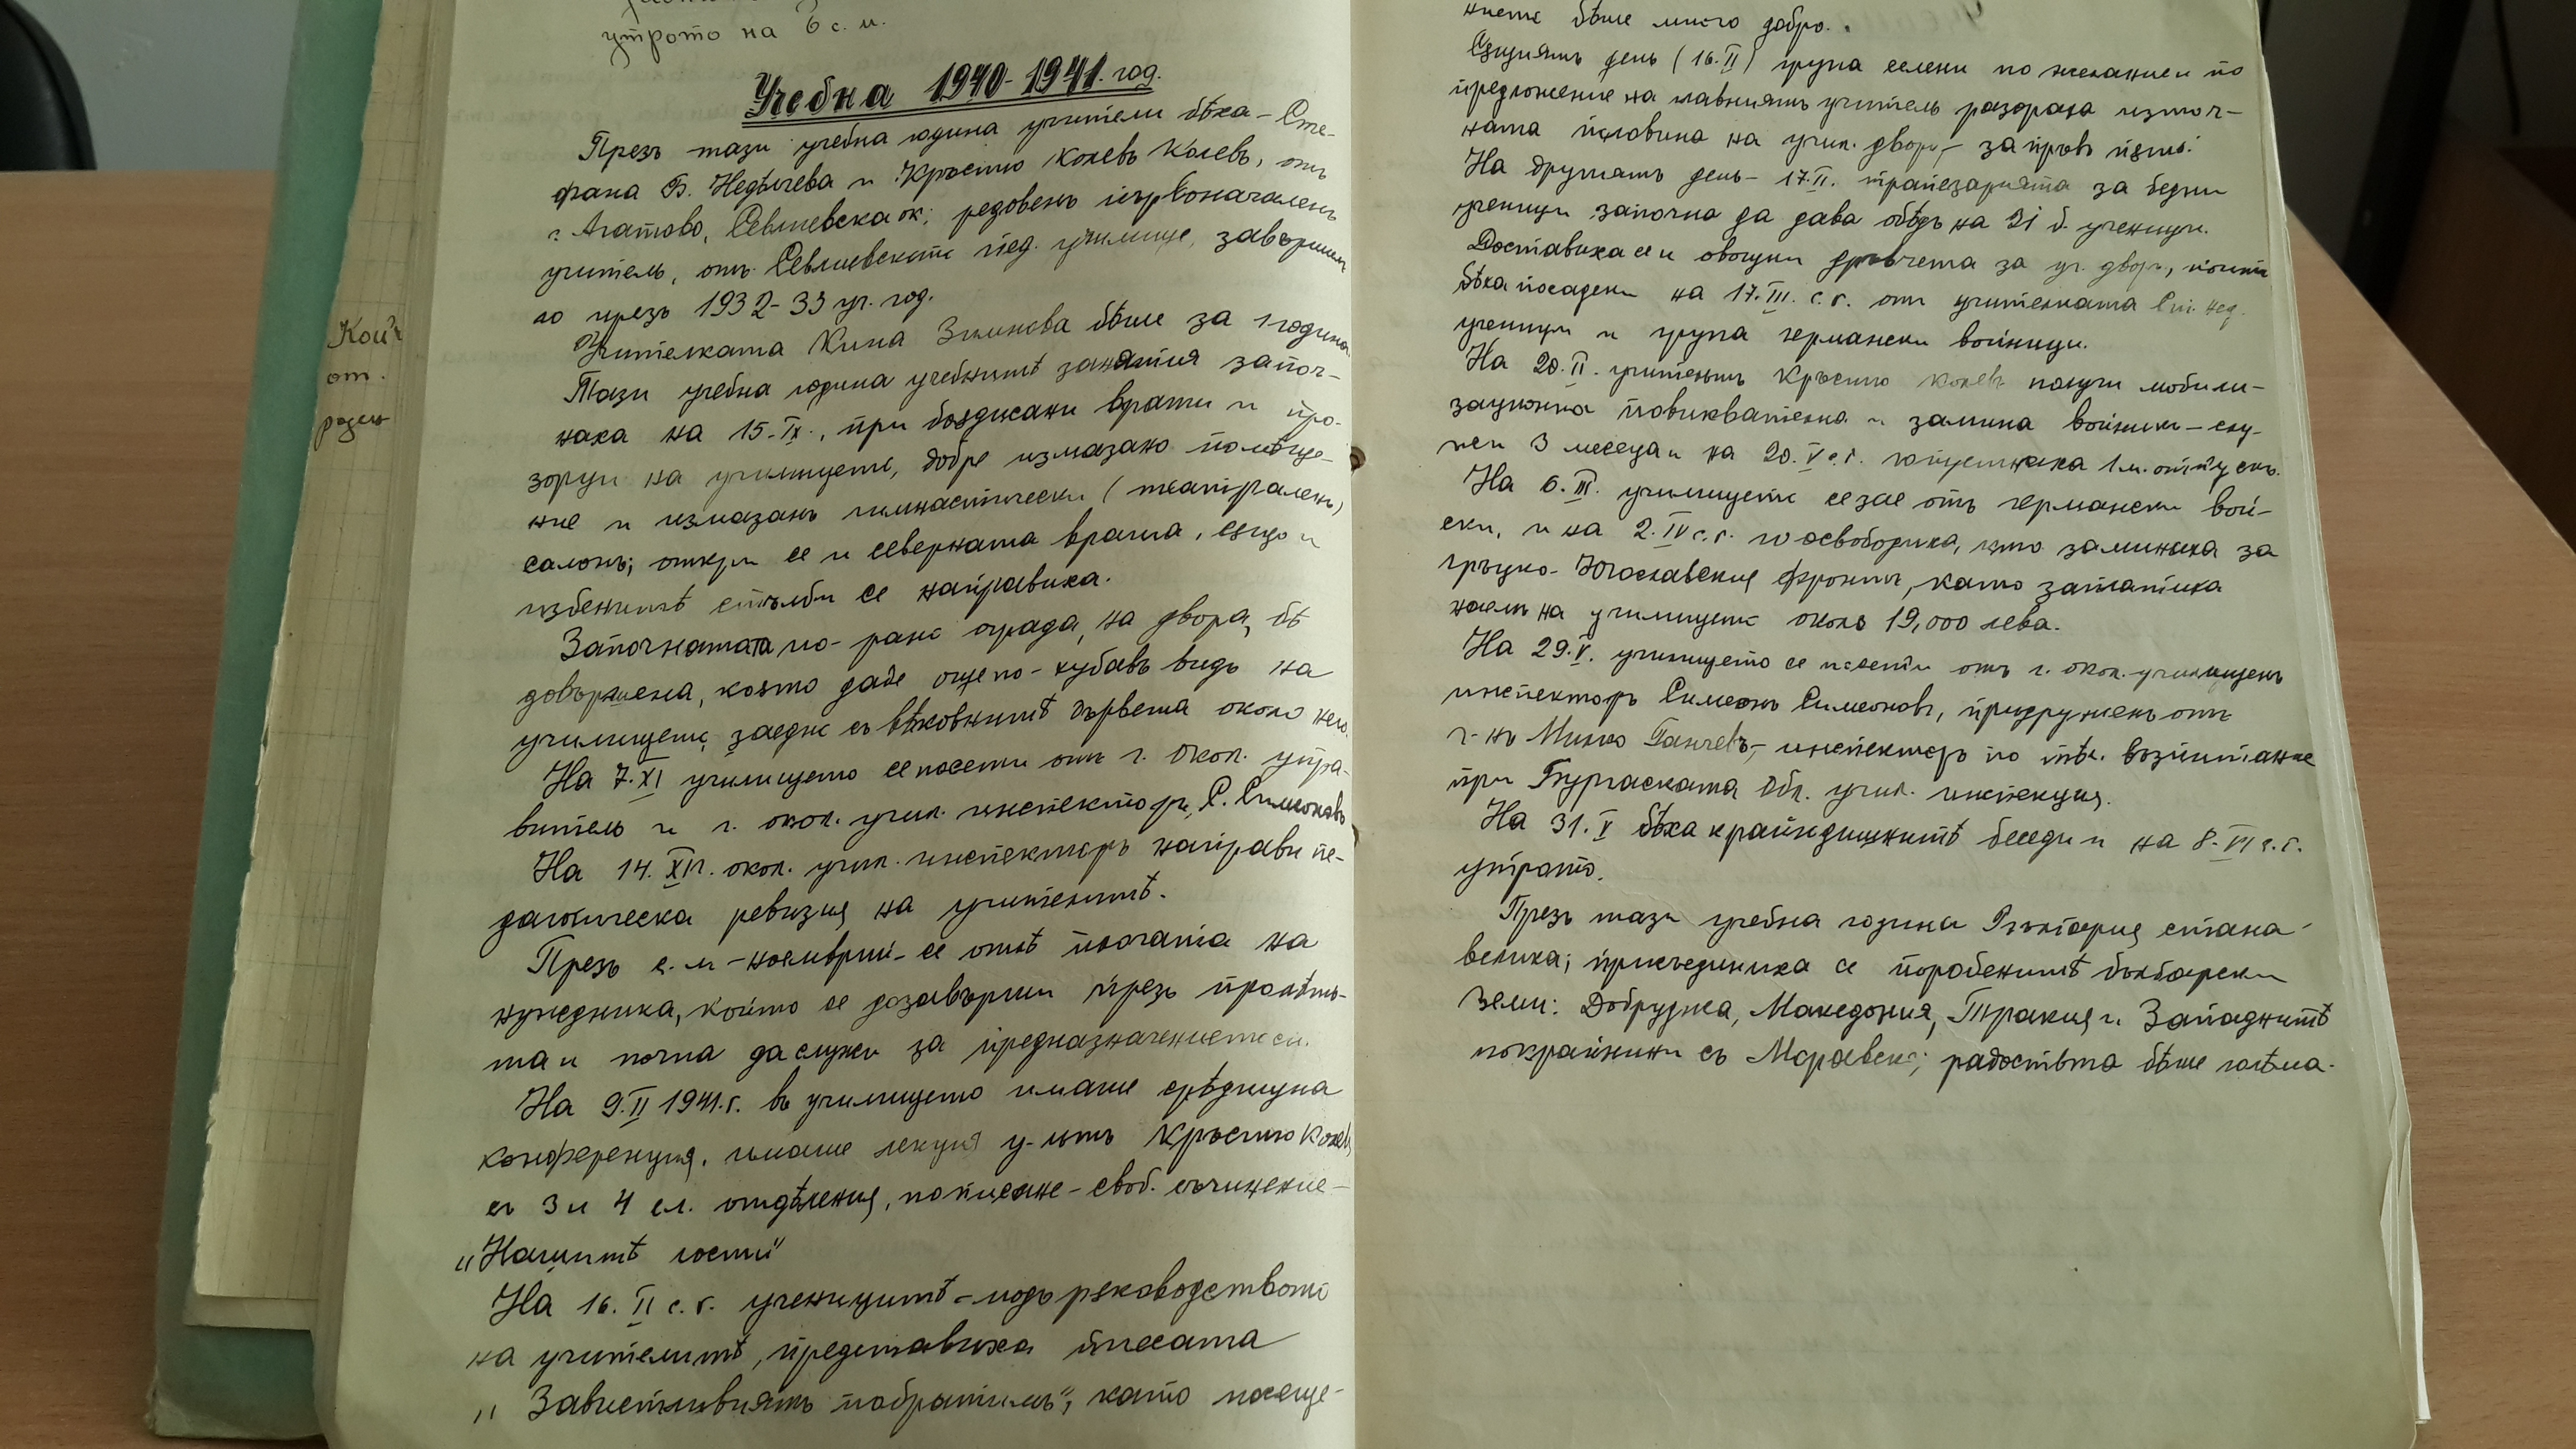 утрото на 6 с. м.
Учебна 1940-1941. год.
Презъ тази учебна година учители бѣха - Сте-
фана Б. Недѣлчева и Кръстю Колевъ Колевъ, отъ
с. Агатово, Севлиевска ок; редовенъ първоначаленъ
учитель, отъ Севлиевското пед. училище, завършилъ
го презъ 1932-33 уч. год.
Учителката Кина Зимнова бѣше за 1 година.
Тази учебна година учебнитѣ занятия започ-
наха на 15. IX., при боядисани врати и про-
зорци на училището, добре измазано помѣще-
ние и измазанъ гимнастически (театраленъ)
салонъ; откри се и северната врата, също и
избенитѣ стълби се направиха.
Започнатата по-рано ограда, на двора, бѣ
довършена, която даде още по-хубавъ видъ на
училището, заедно съ вѣковнитѣ дървета около него.
На 7. XI училището се посети отъ г. Окол. упра-
витель и г. окол. учил. инспекторъ, С. Симеоновъ
На 14. XI г. окол. учил. инспекторъ направи пе-
дагогическа ревизия на учителитѣ.
Презъ с. м - ноемврий - се опѣ плочата на
нужедника, който се дозавърши презъ пролѣть-
та и почна да служи за предназначението си.
На 9. II 1941. г. въ училището имаше срѣдищна
конференция. имаше лекция у-льтъ Кръстю Колевъ
съ 3 и 4 сл. отдѣления, по писане - своб. съчинение -
"Нашитѣ гости"
На 16. II с. г. ученицитѣ - подъ рѫководството
на учителитѣ, представиха пиесата
"Завистливиятъ побратимъ", като посеще-
нието бѣше много добро.
Същиятъ день (16. II) група селени по желание и по
предложение на главниятъ учитель разораха източ-
ната половина на учил. дворъ, - за пръвъ пѫть.
На другиятъ день - 17. II. трапезарията за бедни
ученици започна да дава обѣдъ на 21 б. ученици.
Доставиха се и овощни дръвчета за уч. дворъ, които
бѣха посадени на 17. III. с. г. отъ учителката Ст. Нед.
ученици и група германски войници.
На 20. II. учительтъ Кръстю Колевъ получи мобили-
зационна повиквателна и замина войникъ - слу-
жи 3 месеца и на 20. V с. г. го пуснаха 1 м. отпускъ.
На 6. III. училището се зае отъ германски вой-
ски, и на 2. IV с. г. го освободиха, като заминаха за
гръцко-Югославския фронтъ, като заплатиха
наемъ на училището около 19,000 лева.
На 29. V. училището се посети отъ г. окол. училищенъ
инспекторъ Симеонъ Симеоновъ, придруженъ отъ
г-нъ Минко Ганчевъ, - инспекторъ по тѣл. възпитание
при Бургаската Обл. учил. инспекция.
На 31. V бѣха крайгодишнитѣ беседи и на 8. VI с. г.
утрото.
Презъ тази учебна година България стана
велика; присъединиха се поробенитѣ български
земи: Добруджа, Македония, Тракия и Западнитѣ
покрайнини съ Моравско; радостьта бѣше голѣма.
Кой
от.